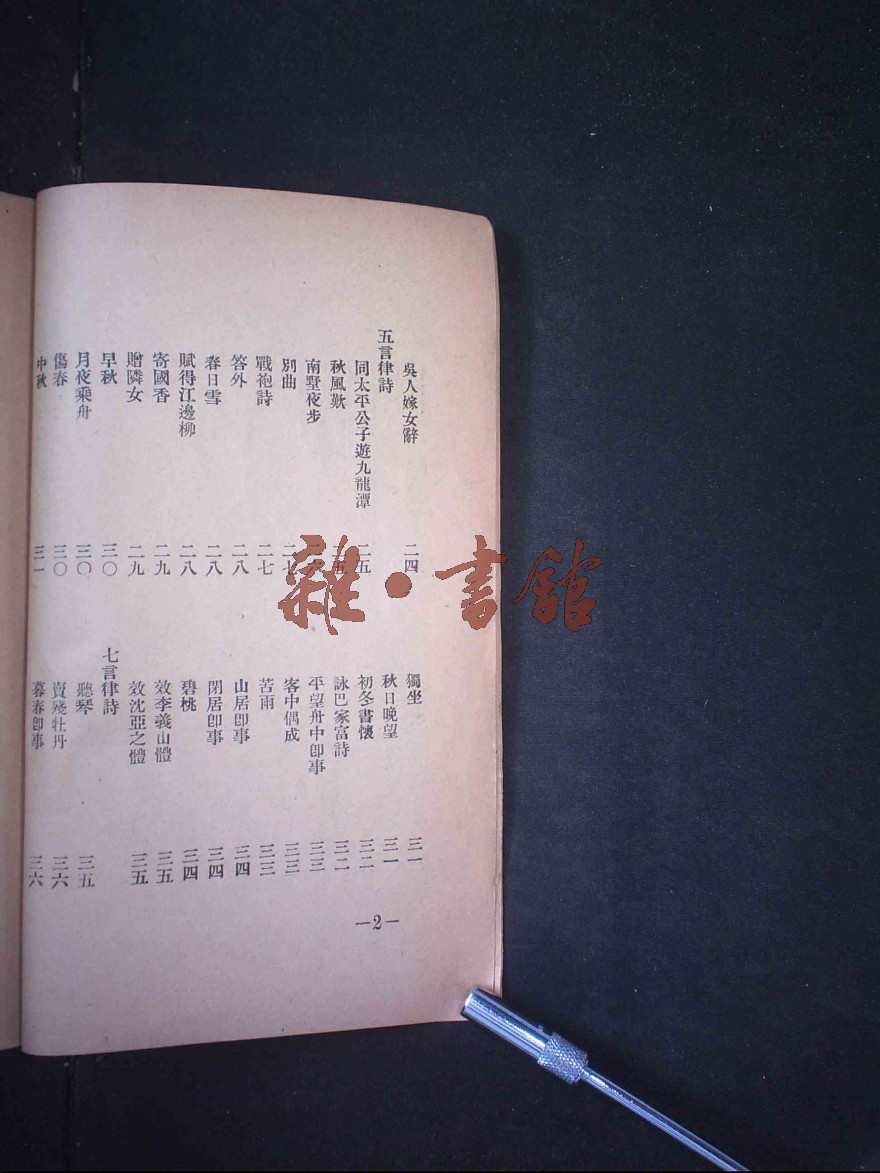 吳人嫁女辭 二四
五言律詩
同太平公子遊九龍潭 二五
秋風歎 二五
南墅夜步 二六
別曲 二七
戰袍詩 二七
答外 二八
春日雪 二八
賦得江邊柳 二八
寄國香 二九
贈隣女 二九
早秋 三〇
月夜乘舟 三〇
傷春 三〇
中秋 三一
獨坐 三一
秋日晚望 三一
初冬書懷 三二
詠巴家富詩 三二
平望舟中卽事 三三
客中偶成 三三
苦雨 三三
山居卽事 三四
閉居卽事 三四
碧桃 三四
效李義山體 三五
效沈亞之體 三五
七言律詩
聽琴 三五
賣殘牡丹 三六
暮春卽事 三六
—2—
雜·書館